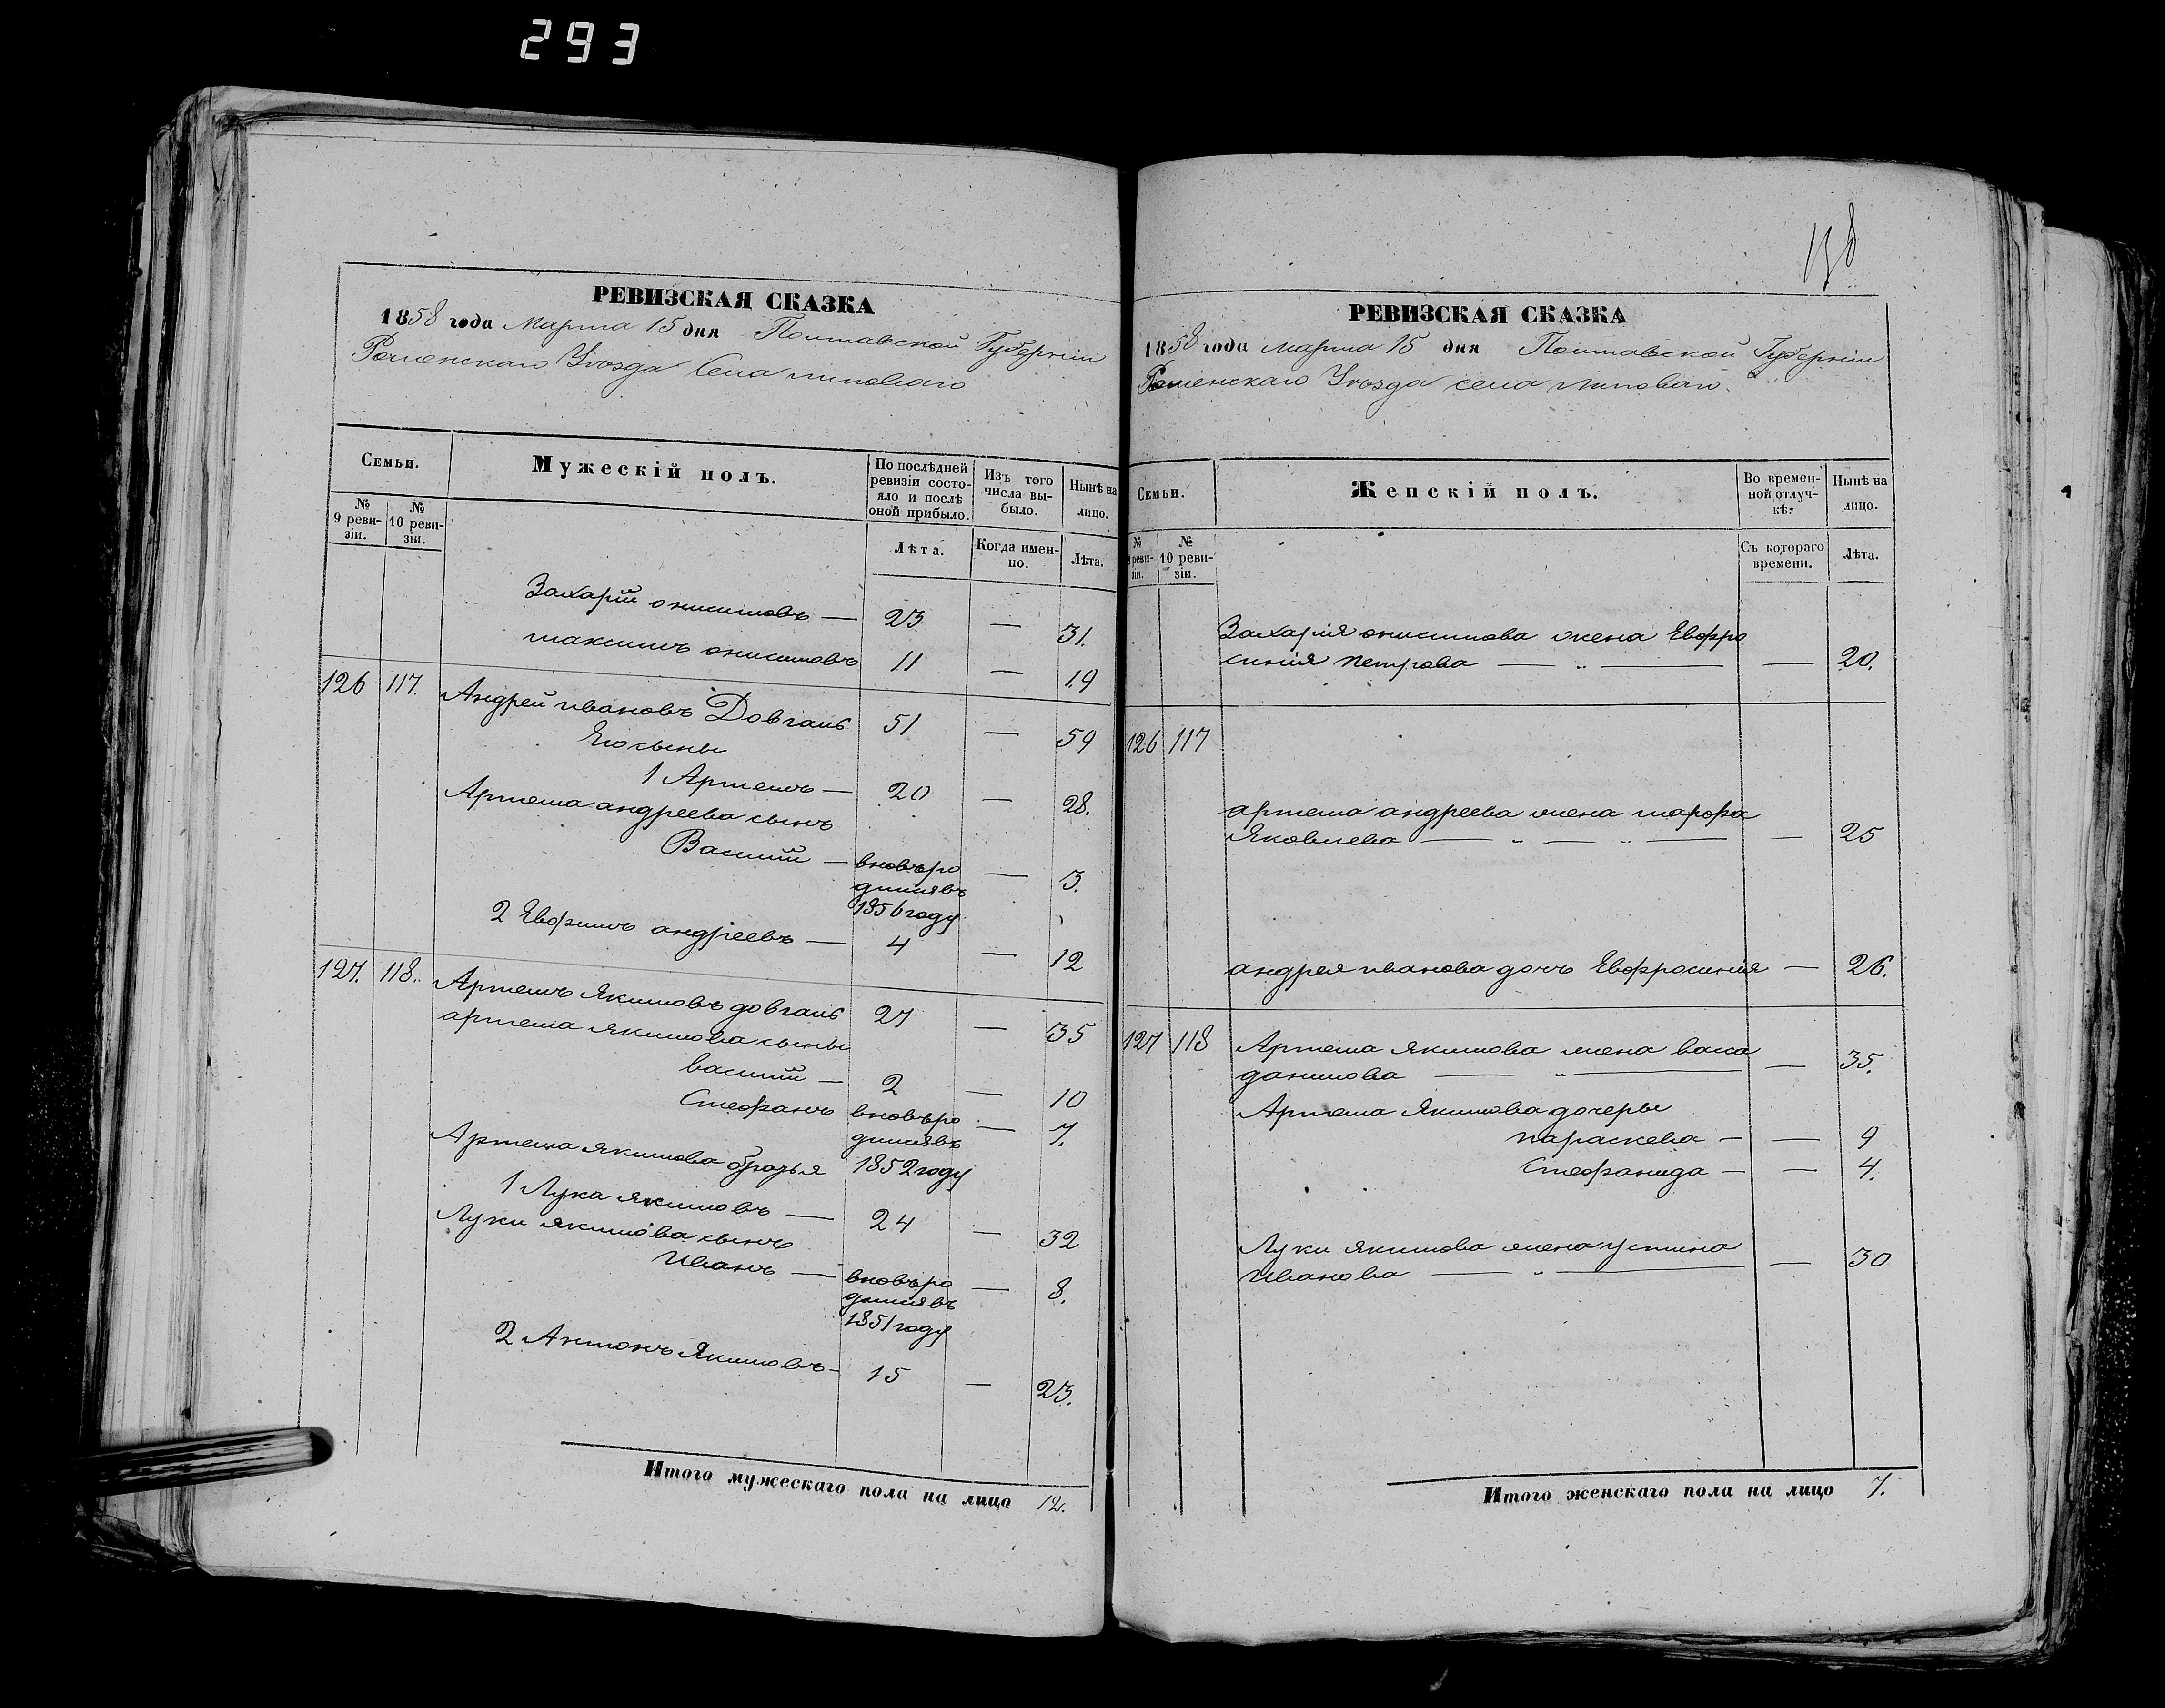 293
РЕВИЗСКАЯ СКАЗКА
1858 года Марта 15 дня Полтавской Губерніи
Роменскаго Уѣзда Села липоваго
Семьи.
Мужескій полъ.
По послѣдней ревизіи состояло и послѣ оной прибыло.
Изъ того числа выбыло.
Нынѣ на лицо.
№ 9 ревизіи.
№ 10 ревизіи.
Лѣта.
Когда именно.
Лѣта.
Захарій онисимовъ — 23 — 31.
максимъ онисимовъ 11 — 19
126 117. Андрей ивановъ Довгаль 51 — 59
Его сыны
1 Артемъ — 20 — 28.
Артема андреева сынъ
Василій — вновь ро — 3.
дился въ
1856 году
2 Евфимъ андреевъ — 4 — 12
127. 118. Артемъ Якимовъ довгаль 27 — 35
артема якимова сыны
василій — 2 — 10
Стефанъ вновь ро — 7.
дился въ
Артема якимова братья 1852 году
1 Лука якимовъ — 24 — 32
Луки якимова сынъ
Иванъ — вновь ро — 8.
дился въ
1851 году
2 Антонъ Якимовъ — 15 — 23.
Итого мужескаго пола на лицо 12.
138
РЕВИЗСКАЯ СКАЗКА
1858 года марта 15 дня Полтавской Губерніи
Роменскаго Уѣзда села липоваго
Семьи.
Женскій полъ.
Во временной отлучкѣ.
Нынѣ на лицо.
№ 9 ревизіи.
№ 10 ревизіи.
Съ котораго времени.
Лѣта.
Захарія онисимова жена Евфро
синія петрова — „ — — 20.
126 117
артема андреева жена марфа
Яковлева — „ — „ — — 25
андрея иванова дочь Евфросинія — 26.
127 118 Артема якимова жена васа
данилова — „ — — 35.
Артема Якимова дочеры
параскева — — 9
Стефанида — — 4.
Луки якимова жена устина
Иванова — „ — — 30
Итого женскаго пола на лицо 7.